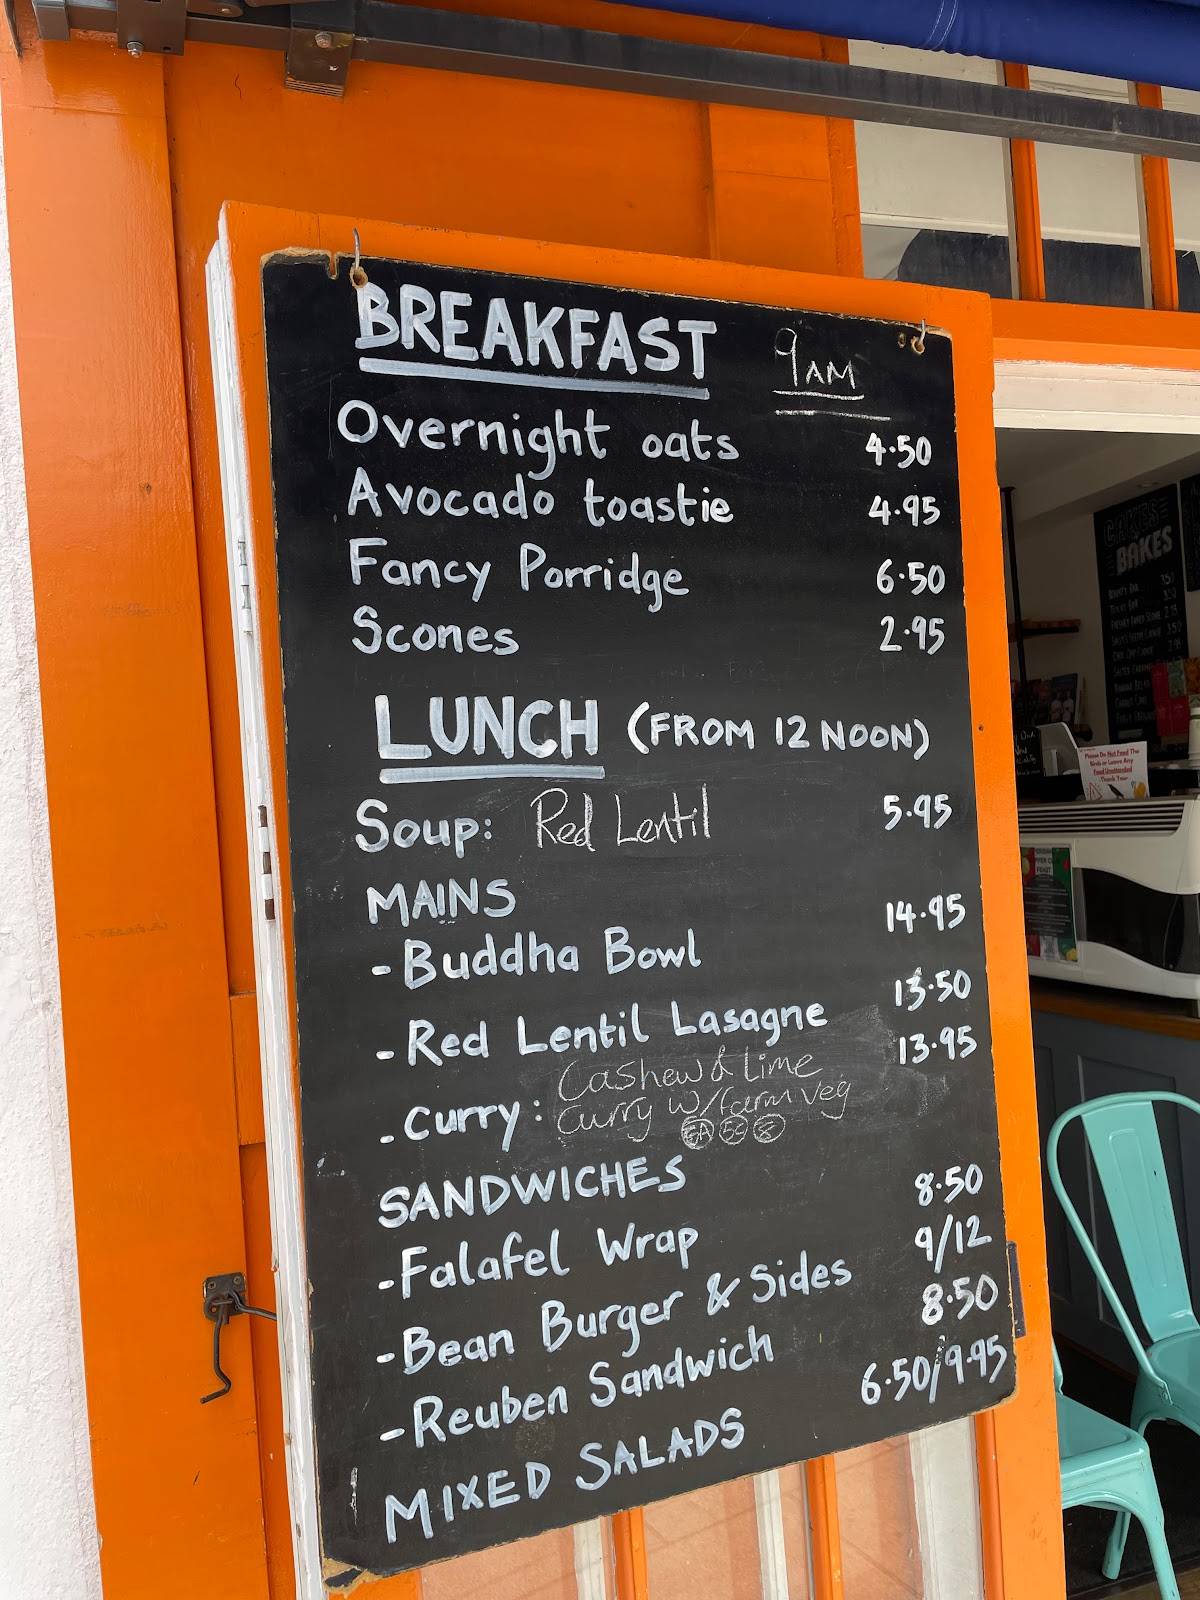 BREAKFAST 9AM
Overnight oats 4.50
Avocado toastie 4.95
Fancy Porridge 6.50
Scones 2.95
LUNCH (FROM 12 NOON)
Soup: Red Lentil 5.95
MAINS
- Buddha Bowl 14.95
- Red Lentil Lasagne 13.50
- Curry: Cashew & Lime 13.95
Curry w/farm veg
SANDWICHES
- Falafel Wrap 8.50
- Bean Burger & Sides 9/12
- Reuben Sandwich 8.50
MIXED SALADS 6.50/9.95
CAKES
BAKES
Please Do Not Feed The
Birds or Leave Any
Food Unattended
Thank You